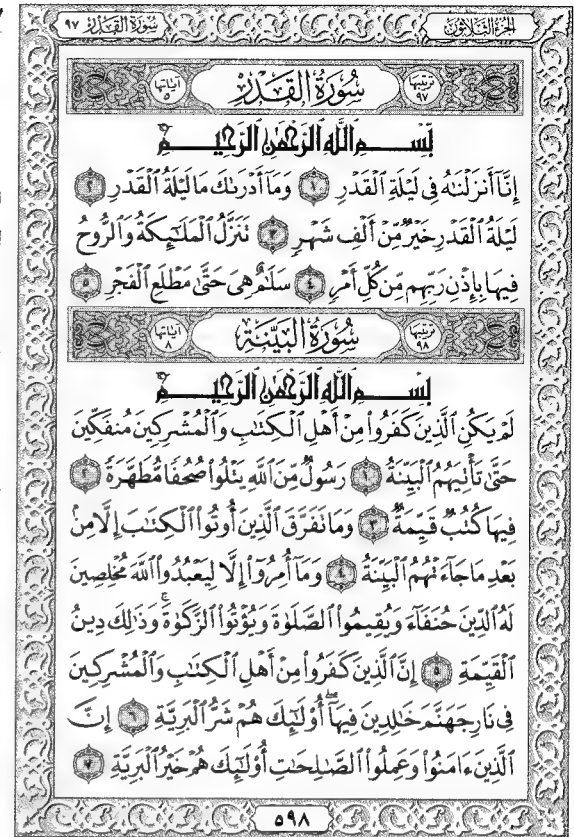 الجزء الثلاثون سورة القدر ٩٧
ترتيبها ٩٧ سُورَةُ القَدْرِ آياتها ٥
بِسْمِ ٱللَّهِ ٱلرَّحْمَٰنِ ٱلرَّحِيمِ
إِنَّآ أَنزَلْنَٰهُ فِى لَيْلَةِ ٱلْقَدْرِ ١ وَمَآ أَدْرَىٰكَ مَا لَيْلَةُ ٱلْقَدْرِ ٢
لَيْلَةُ ٱلْقَدْرِ خَيْرٌ مِّنْ أَلْفِ شَهْرٍ ٣ تَنَزَّلُ ٱلْمَلَٰٓئِكَةُ وَٱلرُّوحُ
فِيهَا بِإِذْنِ رَبِّهِم مِّن كُلِّ أَمْرٍ ٤ سَلَٰمٌ هِىَ حَتَّىٰ مَطْلَعِ ٱلْفَجْرِ ٥
ترتيبها ٩٨ سُورَةُ البَيِّنَةِ آياتها ٨
بِسْمِ ٱللَّهِ ٱلرَّحْمَٰنِ ٱلرَّحِيمِ
لَمْ يَكُنِ ٱلَّذِينَ كَفَرُوا۟ مِنْ أَهْلِ ٱلْكِتَٰبِ وَٱلْمُشْرِكِينَ مُنفَكِّينَ
حَتَّىٰ تَأْتِيَهُمُ ٱلْبَيِّنَةُ ١ رَسُولٌ مِّنَ ٱللَّهِ يَتْلُوا۟ صُحُفًا مُّطَهَّرَةً ٢
فِيهَا كُتُبٌ قَيِّمَةٌ ٣ وَمَا تَفَرَّقَ ٱلَّذِينَ أُوتُوا۟ ٱلْكِتَٰبَ إِلَّا مِنۢ
بَعْدِ مَا جَآءَتْهُمُ ٱلْبَيِّنَةُ ٤ وَمَآ أُمِرُوٓا۟ إِلَّا لِيَعْبُدُوا۟ ٱللَّهَ مُخْلِصِينَ
لَهُ ٱلدِّينَ حُنَفَآءَ وَيُقِيمُوا۟ ٱلصَّلَوٰةَ وَيُؤْتُوا۟ ٱلزَّكَوٰةَ ۚ وَذَٰلِكَ دِينُ
ٱلْقَيِّمَةِ ٥ إِنَّ ٱلَّذِينَ كَفَرُوا۟ مِنْ أَهْلِ ٱلْكِتَٰبِ وَٱلْمُشْرِكِينَ
فِى نَارِ جَهَنَّمَ خَٰلِدِينَ فِيهَآ ۚ أُو۟لَٰٓئِكَ هُمْ شَرُّ ٱلْبَرِيَّةِ ٦ إِنَّ
ٱلَّذِينَ ءَامَنُوا۟ وَعَمِلُوا۟ ٱلصَّٰلِحَٰتِ أُو۟لَٰٓئِكَ هُمْ خَيْرُ ٱلْبَرِيَّةِ ٧
٥٩٨